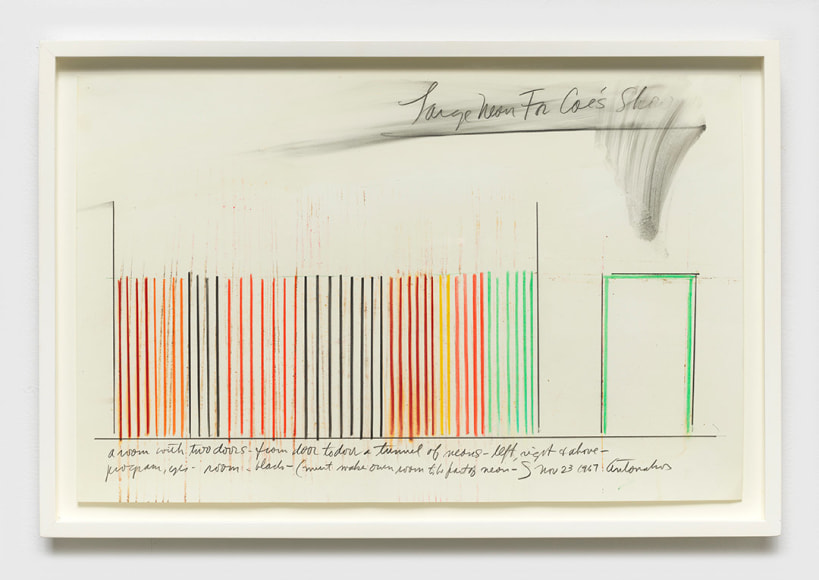 Large Neon For Coe's Show
a room with two doors - from door to door a tunnel of neons - left, right & above -
program, yes - room - black - (must make own room to be part of neon - Nov 23 1967 Antonakos